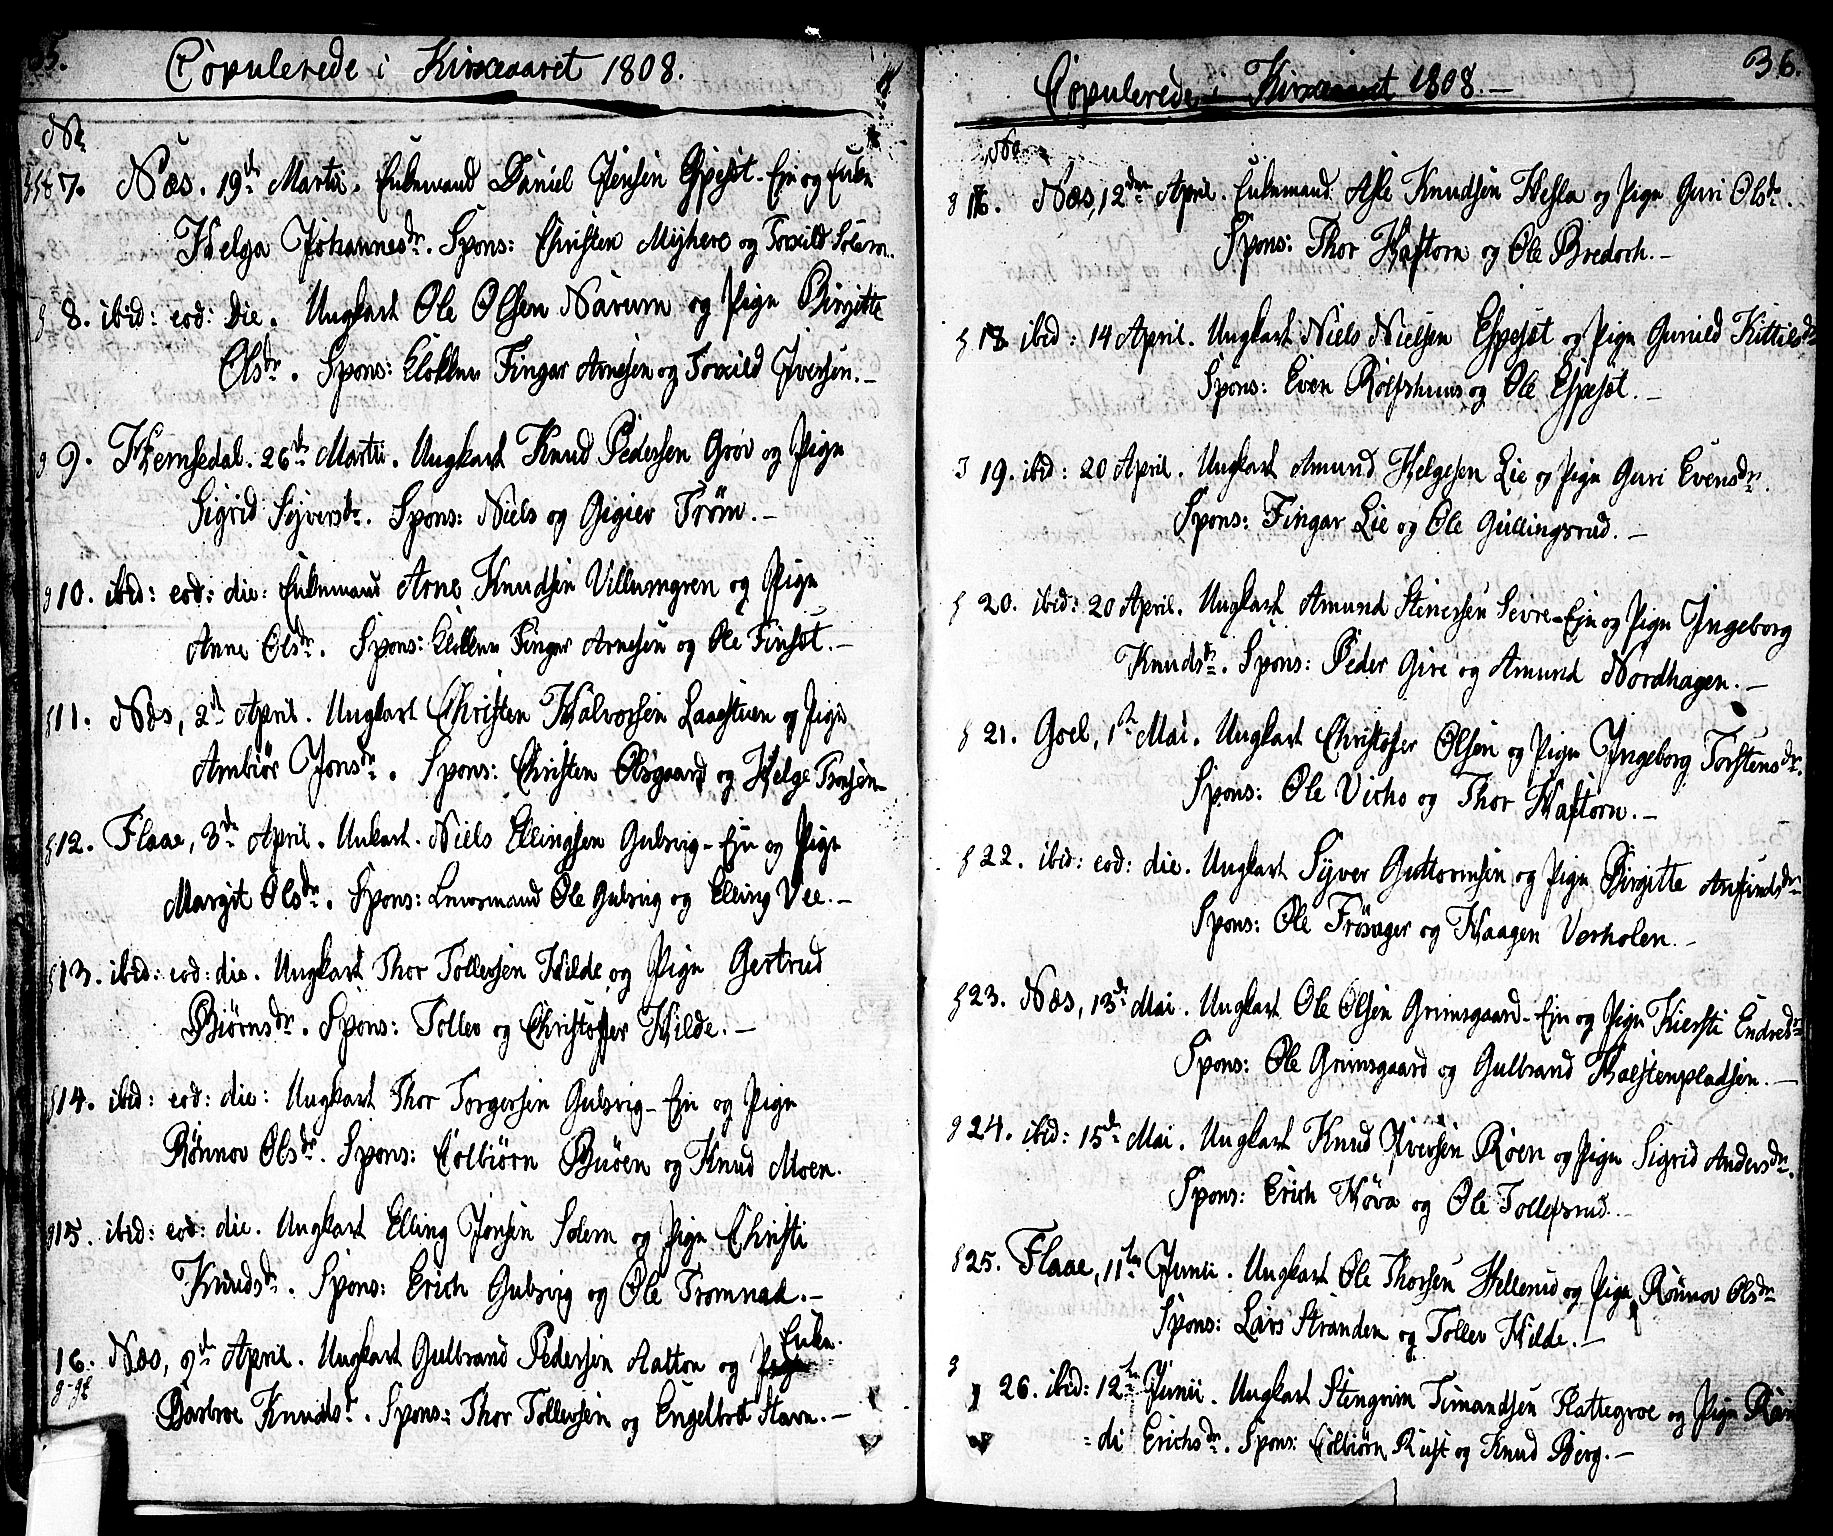 35.
Copulerede i Kirkeaaret 1808.
No
7. Næs. 19de Martii. Enkemand Daniel Jensen Espesøt-Eje og Enke
Helga Johannesdr. Spons: Christen Myhere og Torkild Solem.
8. ibid: eod: Die. Ungkarl Ole Olsen Narum og Pige Birgitte
Olsdr. Spons: Klokker Fingar Arnesen og Torkild Iversen.-
9. Hemsedal. 26de Martii. Ungkarl Knud Pedersen Grøv og Pige
Sigrid Syversdr. Spons: Niels og Gigier Trøm.-
10. ibid: eod: die: Enkemand Arne Knudsen Villumgren og Pige
Anne Olsdr. Spons: Klokker Fingar Arnesen og Ole Finset.-
11. Næs, 2d April. Ungkarl Christen Halvorsen Laaestuen og Pige
Ambiør Jonsdr. Spons: Christen Olsgaard og Helge Tronsen
12. Flaae, 3de April. Unkarl. Niels Ellingsen Gulsvig-Eje og Pige
Margit Olsdr. Spons: Lensmand Ole Gulsvig og Elling Vee.-
13. ibid: eod: die. Ungkarl Thor Tollevsen Hilde og Pige Gertrud
Biørnsdr. Spons: Tollev og Christoffer Hilde.-
14. ibid: eod: die: Ungkarl Thor Torgersen Gulsvig-Eje og Pige
Rønnov Olsdr. Spons: Colbiørn Buøen og Knud Moen.
15. ibid: eod: die. Ungkarl Elling Jonsen Solem og Pige Christi
Knudsdr. Spons: Erich Gulsvig og Ole Tromnad.-
Enke.
16. Næs, 9de April. Ungkarl Gulbrand Pedersen Aalton og Pige
Barbroe Knudsdr. Spons: Thor Tollevsen og Engelbret Stavn.-
36.
Copulerede i Kirkeaaret 1808.-
No
Næs, 12den April. Enkemand Asle Knudsen Hesla og Pige Guri Olsdr.
Spons: Thor Haftorn og Ole Bredoch.-
18 ibid: 14 April. Ungkarl Niels Nielsen Espesøt og Pige Gunild Kittilsdr
Spons: Even Rolfshuus og Ole Espesøt.-
19. ibid: 20 April. Ungkarl Amund Helgesen Lie og Pige Guri Evensdr.
Spons: Fingar Lie og Ole Gullingsrud.-
20. ibid: 20 April. Ungkarl Amund Stenersen Sevre-Eje og Pige Ingeborg
Knudsdr. Spons: Peder Gire og Amund Nordhagen.-
21. Goel, 1ste Mai. Ungkarl Christoffer Olsen og Pige Ingeborg Torstensdr.
Spons: Ole Vicho og Thor Haftorn.-
22. ibid: eod: die. Ungkarl Syver Guttormsen og Pige Birgitte Anfindsdr.
Spons: Ole Frøsager og Haagen Verholen.-
23. Næs, 13de Mai. Ungkarl Ole Olsen Grimsgaard-Eje og Pige Kiersti Endresdr
Spons: Ole Grimsgaard og Gulbrand Halstenpladsen.-
24. ibid: 15de Mai. Ungkarl Knud Iversen Roen og Pige Sigrid Andersdr.
Spons: Erich Høva og Ole Tollefsrud.
25. Flaae, 11te Junii. Ungkarl Ole Thorsen Hellerud og Pige Rønnov Olsdr
Spons: Lars Stranden og Tollev Hilde.-
26. ibid: 12te Junii. Ungkarl Stengrim Timandsen Slattegroe og Pige Ran
=di Erichsdr. Spons: Colbiørn Rust og Knud Berg.-